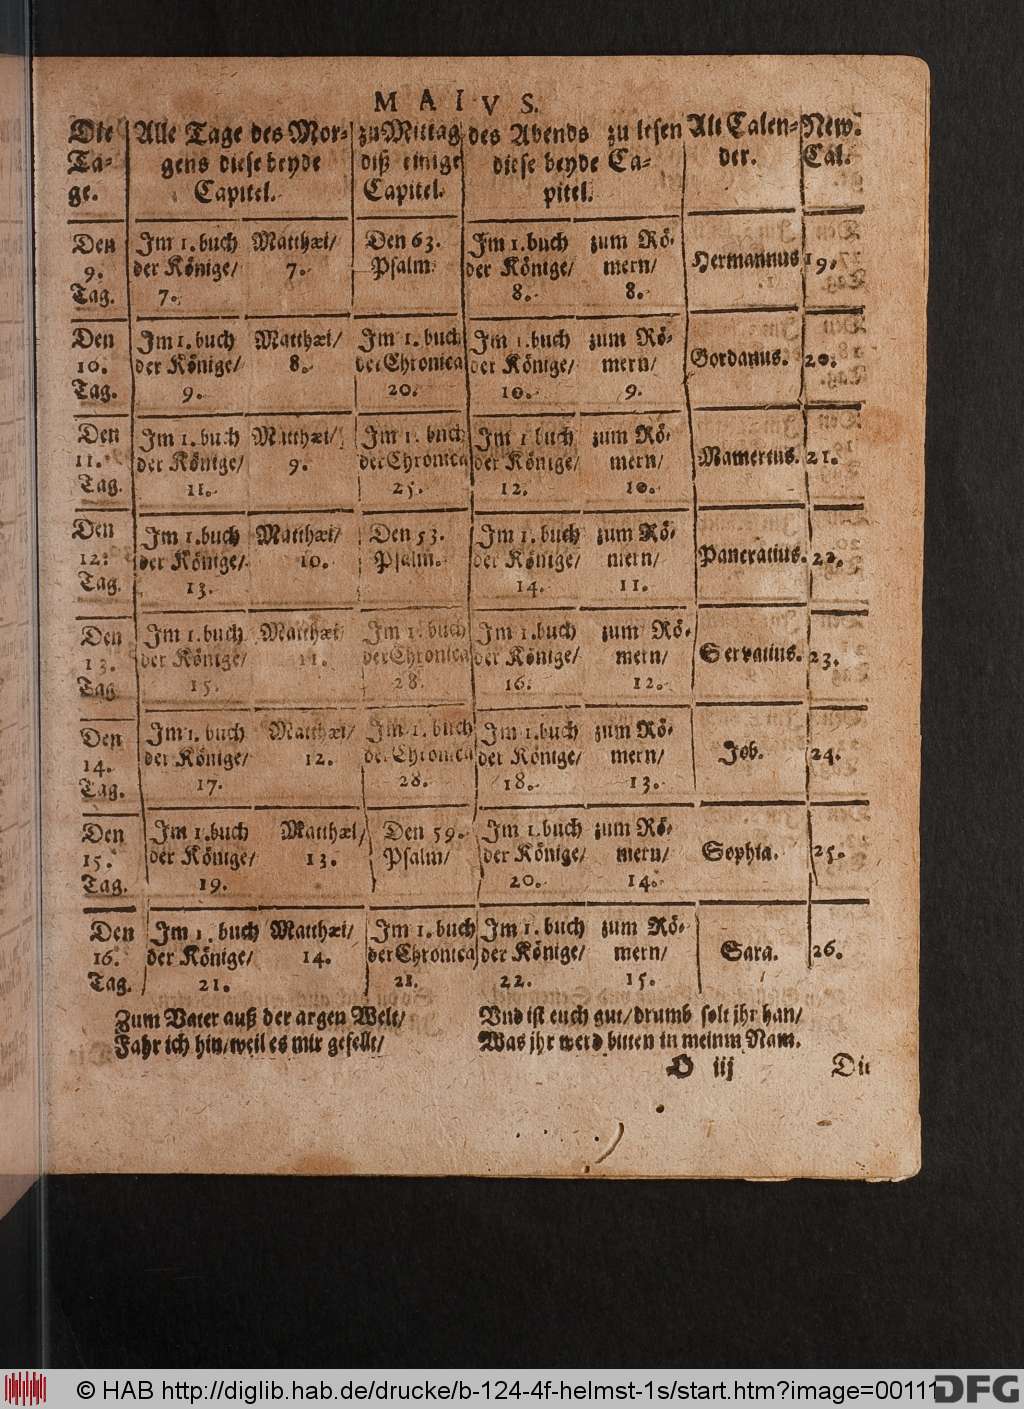 MAIVS.
Die Alle Tage des Mor- zu Mittag des Abends zu lesen Alt Calen- New.
Ta- gens diese beyde diß einige diese beyde Ca- der. Cal.
ge. Capitel. Capitel. pitel.
Den Im 1. buch Matthæi/ Den 63. Im 1. buch zum Rö-
9. der Könige/ 7. Psalm. der Könige/ mern/ Hermannus 19.
Tag. 7. 8. 8.
Den Im 1. buch Matthæi/ Im 1. buch Im 1. buch zum Rö-
10. der Könige/ 8. der Chronica der Könige/ mern/ Gordanus. 20.
Tag. 9. 20. 10. 9.
Den Im 1. buch Matthæi/ Im 1. buch Im 1 buch zum Rö-
11. der Könige/ 9. der Chronica der Könige/ mern/ Mamertus. 21.
Tag. 11. 25. 12. 10.
Den Im 1. buch Matthæi/ Den 53. Im 1. buch zum Rö-
12. der Könige/ 10. Psalm. der Könige/ mern/ Pancratius. 22.
Tag. 13. 14. 11.
Den Im 1. buch Matthæi Im 1. buch Im 1. buch zum Rö-
13. der Könige/ 11. der Chronica der Könige/ mern/ Servatius. 23.
Tag 15. 28. 16. 12.
Den Im 1. buch Matthæi/ Im 1. buch Im 1. buch zum Rö-
14. der Könige/ 12. der Chronica der Könige/ mern/ Job. 24.
Tag. 17. 28. 18. 13.
Den Im 1. buch Matthæi/ Den 59. Im 1. buch zum Rö-
15. der Könige/ 13. Psalm/ der Könige/ mern/ Sophia. 25.
Tag. 19. 20. 14.
Den Im 1. buch Matthæi/ Im 1. buch Im 1. buch zum Rö-
16. der Könige/ 14. der Chronica der Könige/ mern/ Sara. 26.
Tag. 21. 21. 22. 15.
Zum Vater auß der argen Welt/ Vnd ist euch gut/drumb solt ihr han/
Fahr ich hin/weil es mir gefellt/ Was jhr werd bitten in meinm Nam.
O iij Die
© HAB http://diglib.hab.de/drucke/b-124-4f-helmst-1s/start.htm?image=00111
DFG